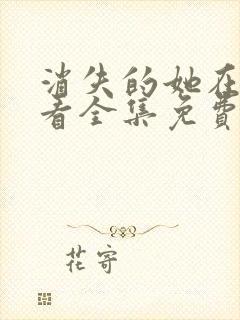 消失的她在
看全集免费
花寄